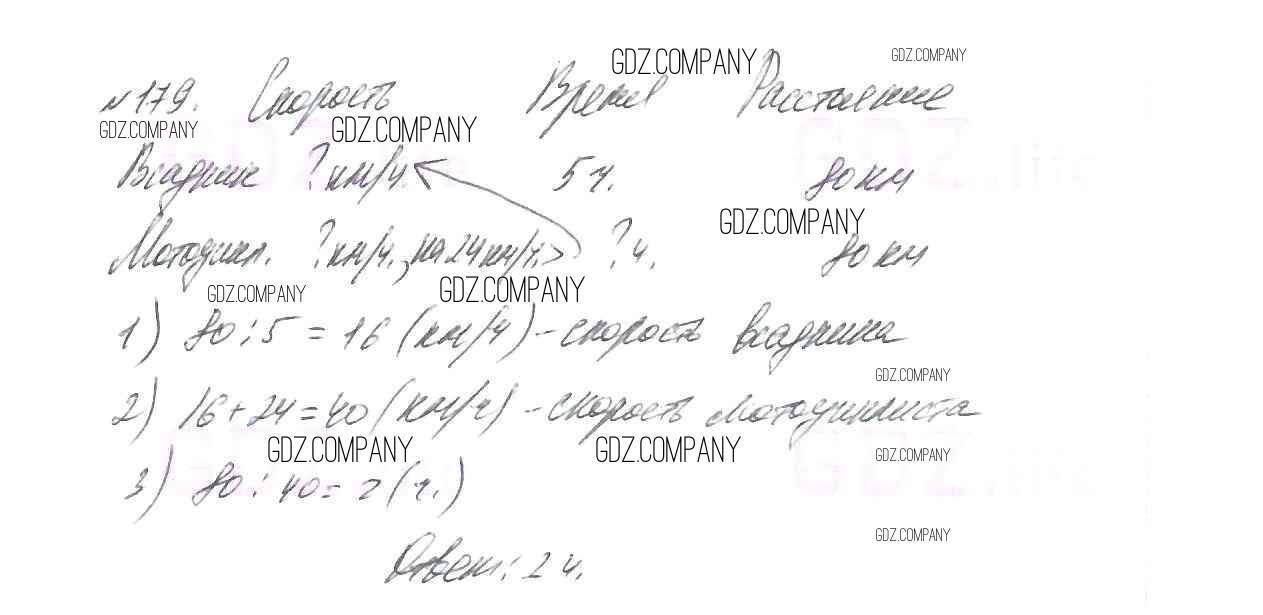 GDZ.COMPANY GDZ.COMPANY
№179. Скорость Время Расстояние
GDZ.COMPANY GDZ.COMPANY
Всадник ?км/ч. 5 ч. 80 км
GDZ.COMPANY
Мотоцикл. ?км/ч., на 24км/ч.> ?ч. 80 км
GDZ.COMPANY GDZ.COMPANY
1) 80:5=16 (км/ч) - скорость всадника
GDZ.COMPANY
2) 16+24=40 (км/ч) - скорость мотоциклиста
GDZ.COMPANY GDZ.COMPANY GDZ.COMPANY
3) 80:40=2(ч.)
GDZ.COMPANY
Ответ: 2 ч.